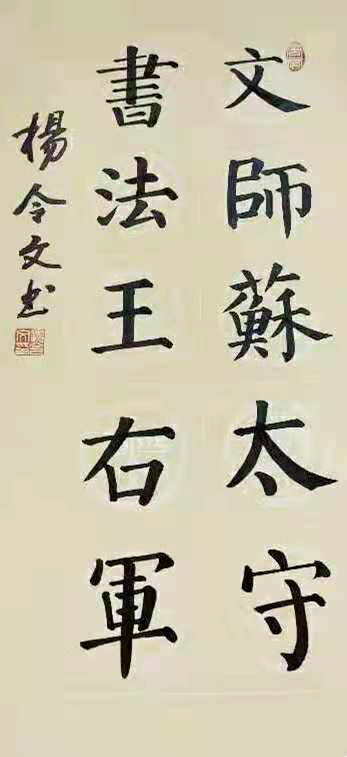 文師蘇太守
書法王右軍
楊令文书